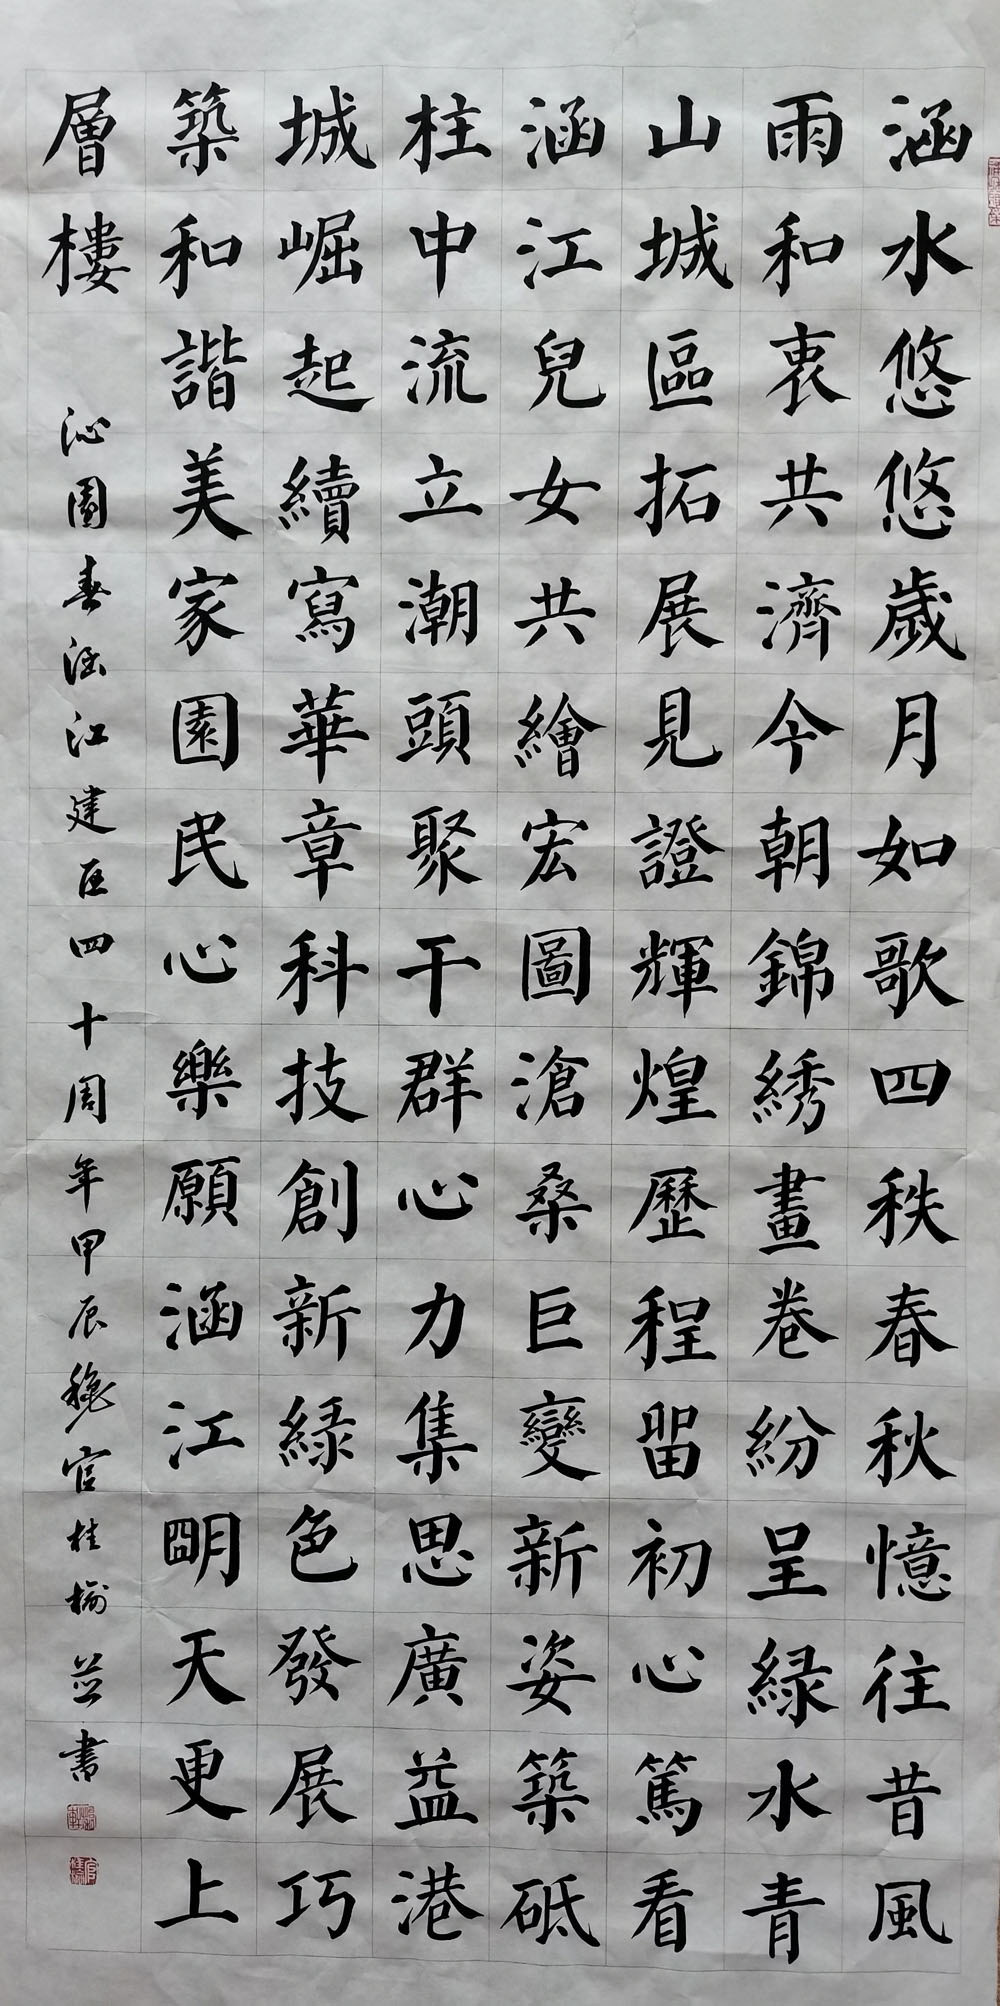 涵水悠悠歲月如歌四秩春秋憶往昔風
雨和衷共濟今朝錦綉畫卷紛呈緑水青
山城區拓展見證輝煌歷程留初心篤看
涵江兒女共繪宏圖滄桑巨變新姿築砥
柱中流立潮頭聚干群心力集思廣益港
城崛起續寫華章科技創新緑色發展巧
築和諧美家園民心樂願涵江明天更上
層樓
沁園春涵江建區四十周年甲辰穐官桂榆並書